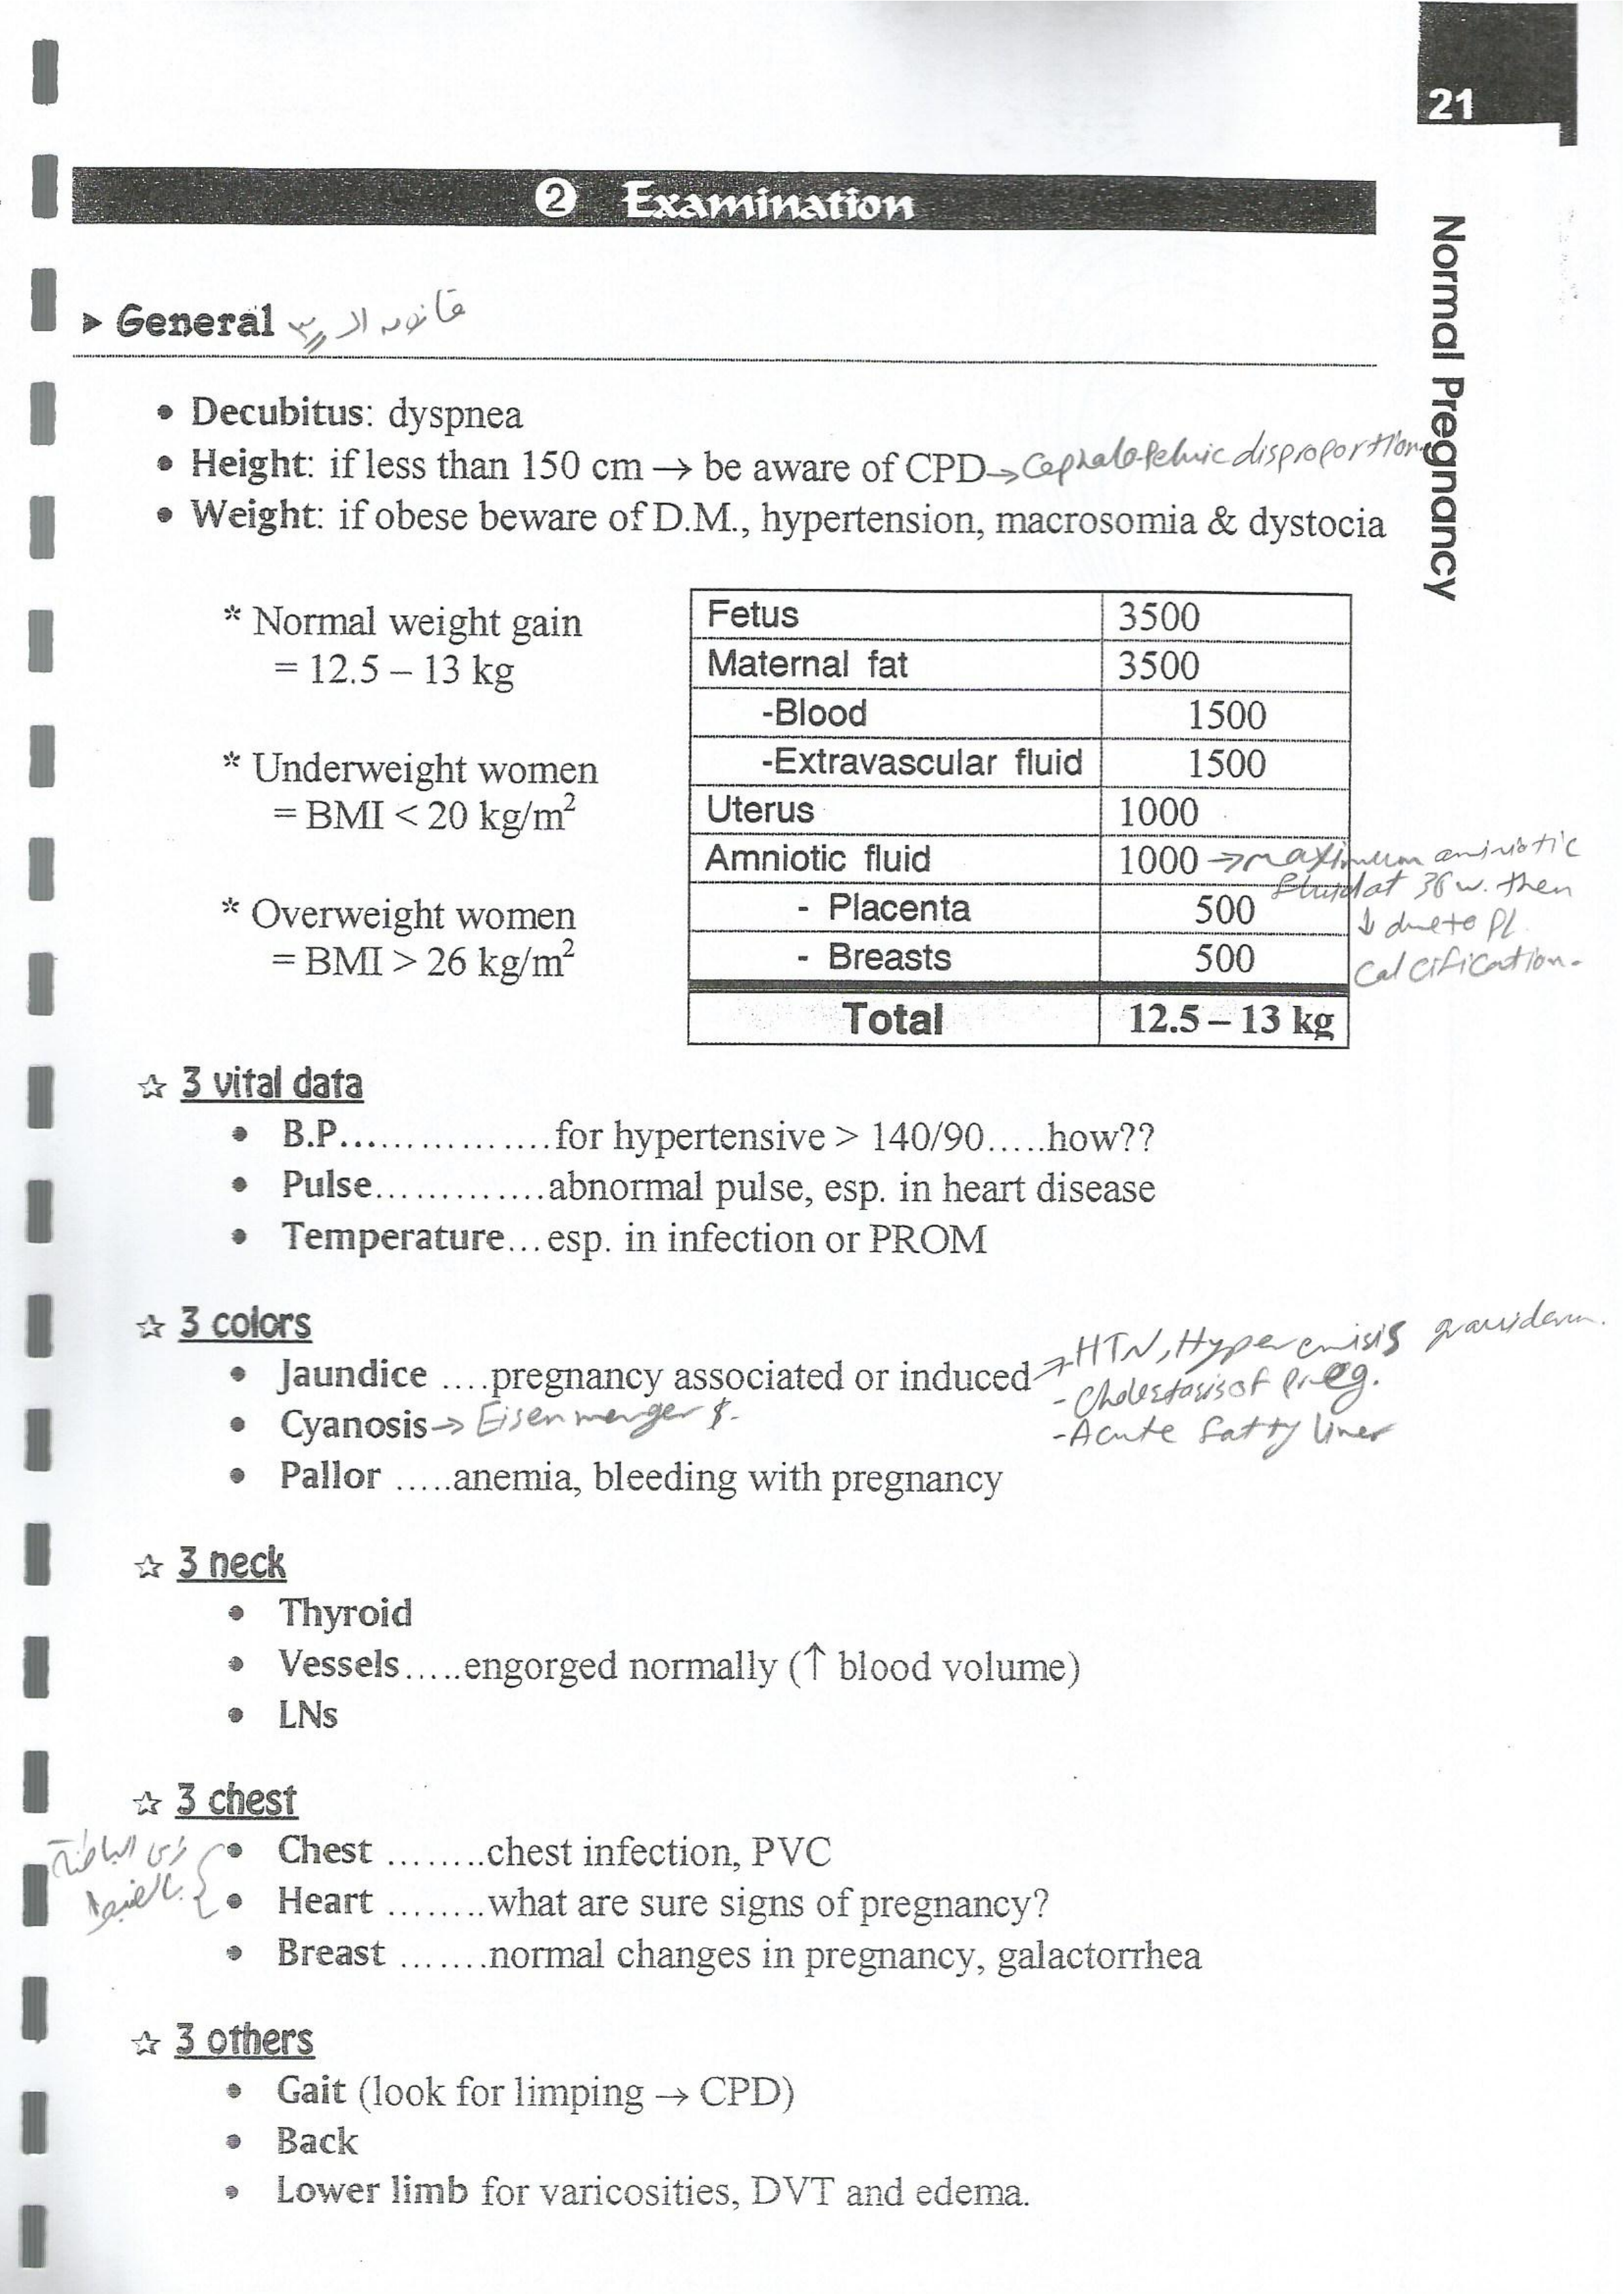 21
Normal Pregnancy
❷ Examination
➤ General قانون الـ ٣
• Decubitus: dyspnea
• Height: if less than 150 cm → be aware of CPD → Cephalo-Pelvic disproportion
• Weight: if obese beware of D.M., hypertension, macrosomia & dystocia
* Normal weight gain
= 12.5 – 13 kg
* Underweight women
= BMI < 20 kg/m²
* Overweight women
= BMI > 26 kg/m²
Fetus 3500
Maternal fat 3500
-Blood 1500
-Extravascular fluid 1500
Uterus 1000
Amniotic fluid 1000 → maximum amniotic
fluid at 36 w. then
↓ due to Pl.
calcification.
- Placenta 500
- Breasts 500
Total 12.5 – 13 kg
☆ 3 vital data
• B.P................for hypertensive > 140/90.....how??
• Pulse.............abnormal pulse, esp. in heart disease
• Temperature...esp. in infection or PROM
☆ 3 colors
• Jaundice ....pregnancy associated or induced → HTN, Hyperemisis gravidarum.
- Cholestasis of preg.
- Acute fatty liver
• Cyanosis → Eisenmenger $.
• Pallor .....anemia, bleeding with pregnancy
☆ 3 neck
• Thyroid
• Vessels.....engorged normally (↑ blood volume)
• LNs
☆ 3 chest
زى الباطنة
بالضبط
• Chest ........chest infection, PVC
• Heart ........what are sure signs of pregnancy?
• Breast .......normal changes in pregnancy, galactorrhea
☆ 3 others
• Gait (look for limping → CPD)
• Back
• Lower limb for varicosities, DVT and edema.